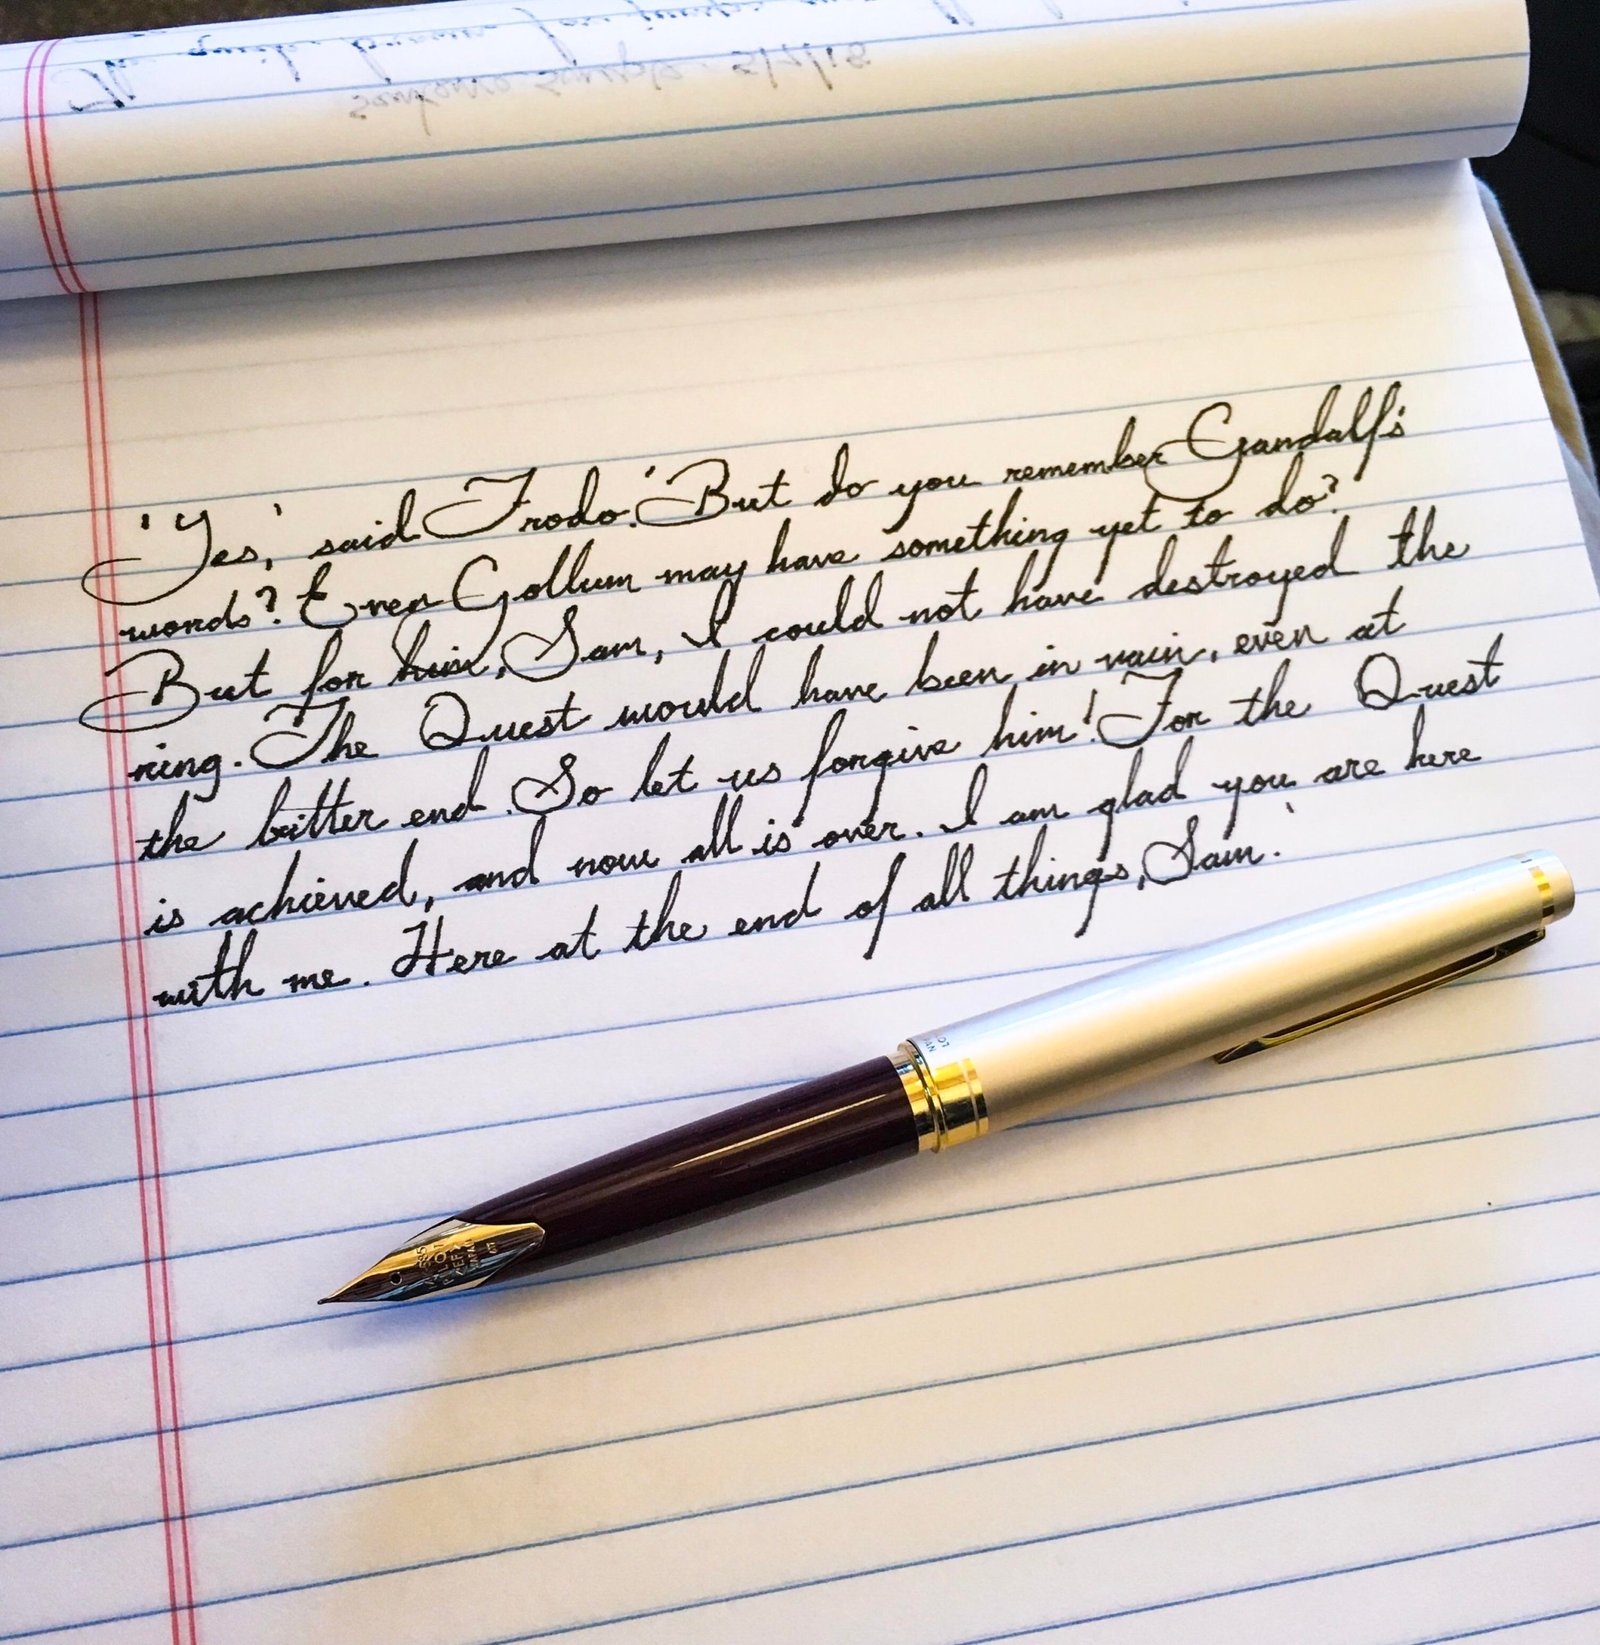 'Yes,' said Frodo. 'But do you remember Gandalf's
words? Even Gollum may have something yet to do?
But for him, Sam, I could not have destroyed the
ring. The Quest would have been in vain, even at
the bitter end. So let us forgive him! For the Quest
is achieved, and now all is over. I am glad you are here
with me. Here at the end of all things, Sam.'
585